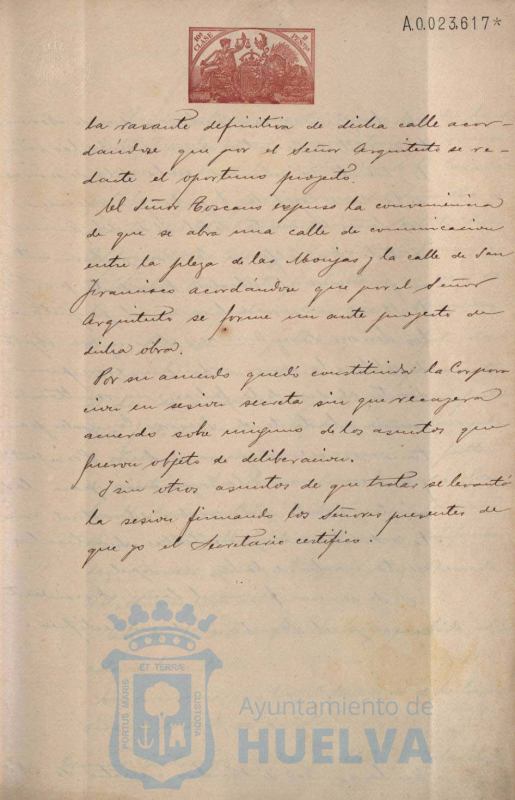 A.0.023.617*
10ª CLASE
2 PESTAS
la rasante definitiva de dicha calle acor-
dándose que por el Señor Arquitecto se re-
dacte el oportuno proyecto.
El Señor Toscano expuso la conveniencia
de que se abra una calle de comunicacion
entre la plaza de las Monjas y la calle de San
Francisco acordándose que por el Señor
Arquitecto se forme un ante proyecto de
dicha obra.
Por su acuerdo quedó constituida la Corpora
cion en sesion secreta sin que recayera
acuerdo sobre ninguno de los asuntos que
fueron objeto de deliberacion.
Y sin otros asuntos de que tratar se levantó
la sesion firmando los Señores presentes de
que yo el Secretario certifico.
ET TERRÆ
PORTUS MARIS
CUSTODIA
Ayuntamiento de
HUELVA